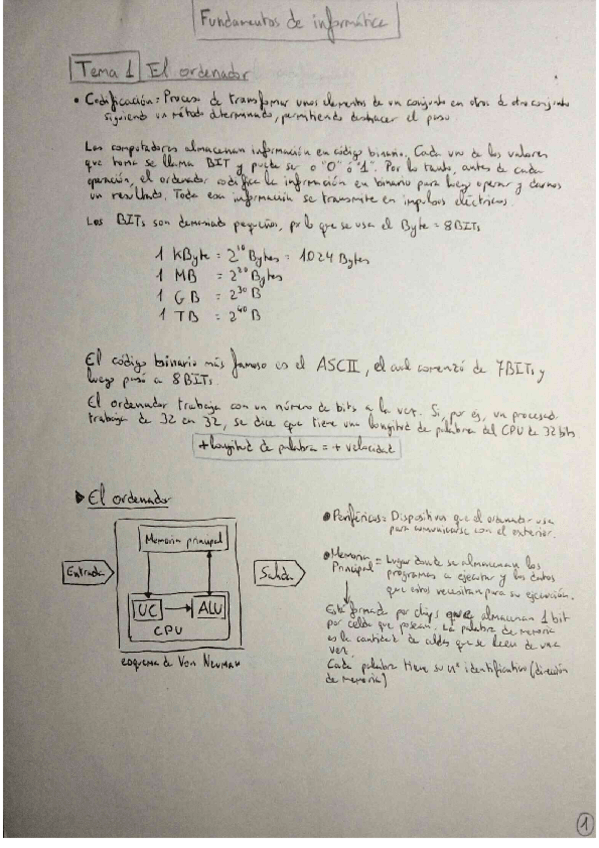 Fundamentos de informática
Tema 1 El ordenador
• Codificación: Proceso de transformar unos elementos de un conjunto en otros de otro conjunto
siguiendo un método determinado, permitiendo deshacer el paso
Las computadoras almacenan información en código binario. Cada uno de los valores
que toma se llama BIT y puede ser o "0" ó "1". Por lo tanto, antes de cada
operación, el ordenador codifica la información en binario para luego operar y darnos
un resultado. Toda esa información se transmite en impulsos eléctricos.
Los BITs son demasiado pequeños, por lo que se usa el Byte = 8BITs
1 KByte = 2^10 Bytes = 1024 Bytes
1 MB = 2^20 Bytes
1 GB = 2^30 B
1 TB = 2^40 B
El código binario más famoso es el ASCII, el cual comenzó de 7BITs y
luego pasó a 8BITs.
El ordenador trabaja con un número de bits a la vez. Si, por ej, un procesad.
trabaja de 32 en 32, se dice que tiene una longitud de palabra del CPU de 32 bits
+ longitud de palabra = + velocidad
▶ El ordenador
Entrada
Memoria principal
UC
ALU
CPU
Salida
esquema de Von Neuman
• Periféricos = Dispositivos que el ordenador usa
para comunicarse con el exterior.
• Memoria Principal = Lugar donde se almacenan los
programas a ejecutar y los datos
que estos necesitan para su ejecución.
Está formada por chips que almacenan 1 bit
por celda que posean. La palabra de memoria
es la cantidad de celdas que se leen de una
vez.
Cada palabra tiene su nº identificativo (dirección
de memoria)
1